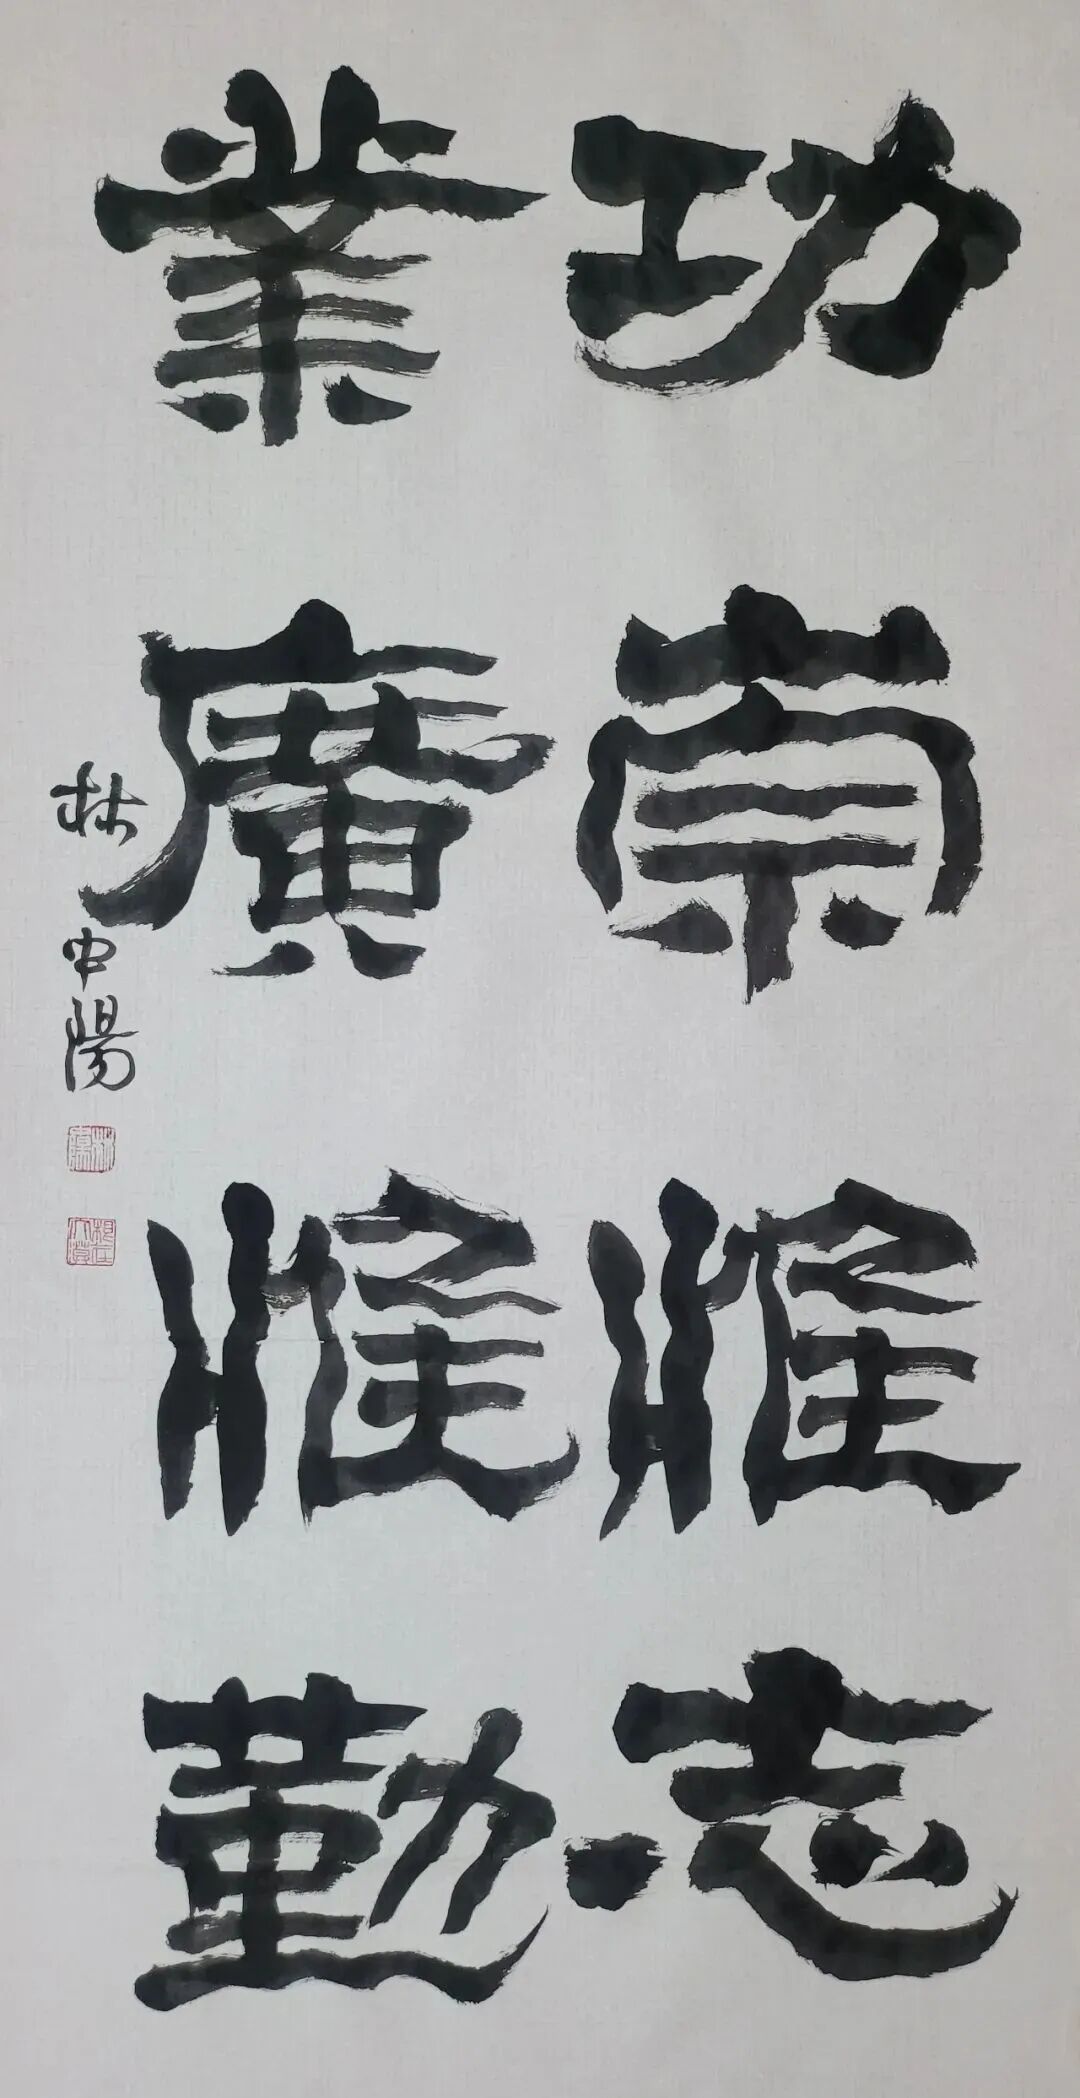 功崇惟志
業廣惟勤
林中陽